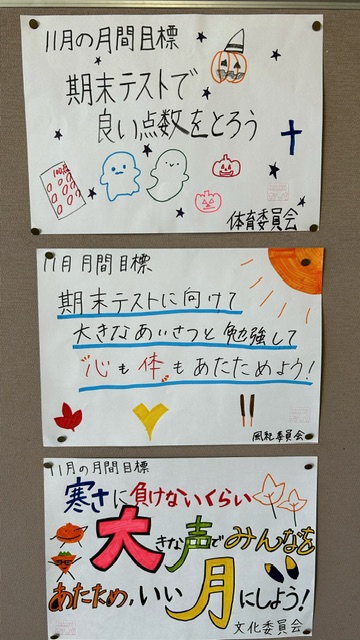 11月の月間目標
期末テストで
良い点数をとろう
100点
体育委員会
11月 月間目標
期末テストに向けて
大きなあいさつと勉強して
"心"も"体"もあたためよう!
風紀委員会
11月の月間目標
寒さに負けないくらい
大きな声でみんなを
あたため,いい月にしよう!
文化委員会